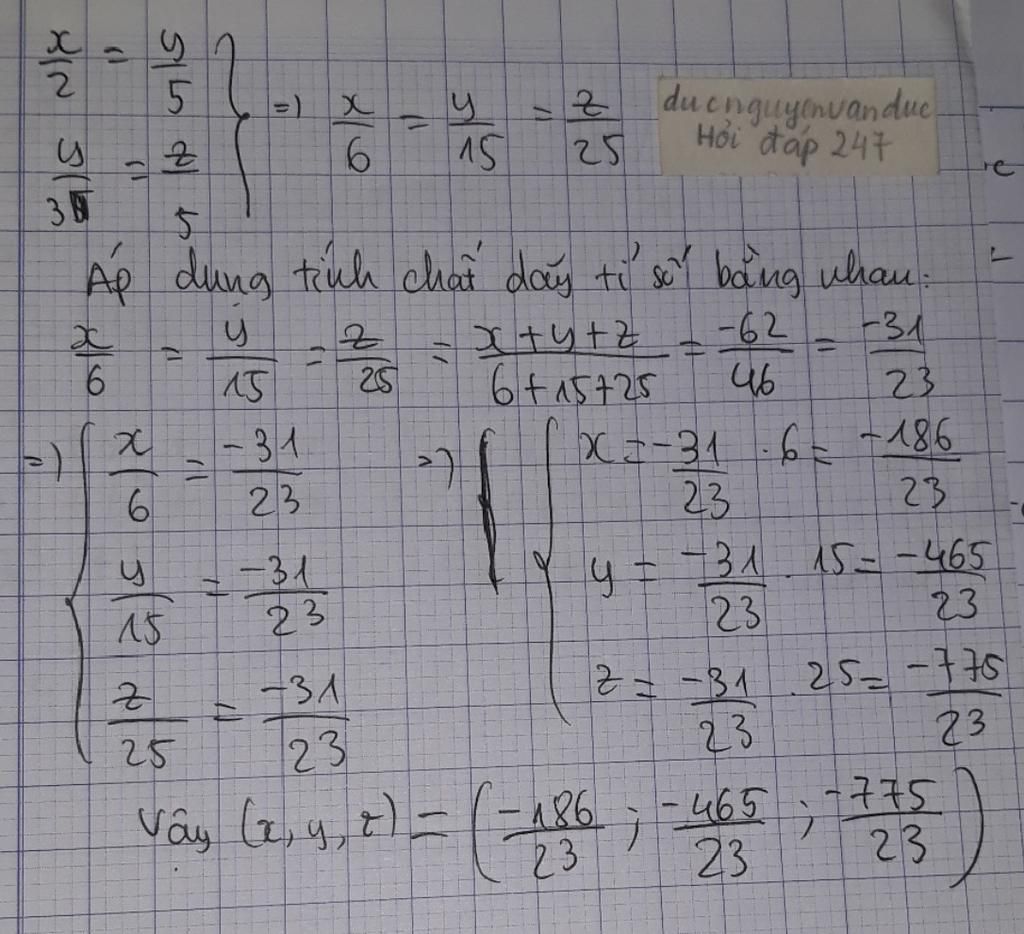 x/2 = y/5
y/3 = z/5 } => x/6 = y/15 = z/25
ducnguyenvanduc
Hỏi đáp 247
Áp dụng tính chất dãy tỉ số bằng nhau:
x/6 = y/15 = z/25 = x+y+z/6+15+25 = -62/46 = -31/23
=> { x/6 = -31/23 => { x = -31/23 . 6 = -186/23
y/15 = -31/23 y = -31/23 . 15 = -465/23
z/25 = -31/23 z = -31/23 . 25 = -775/23
Vậy (x, y, z) = (-186/23 ; -465/23 ; -775/23)